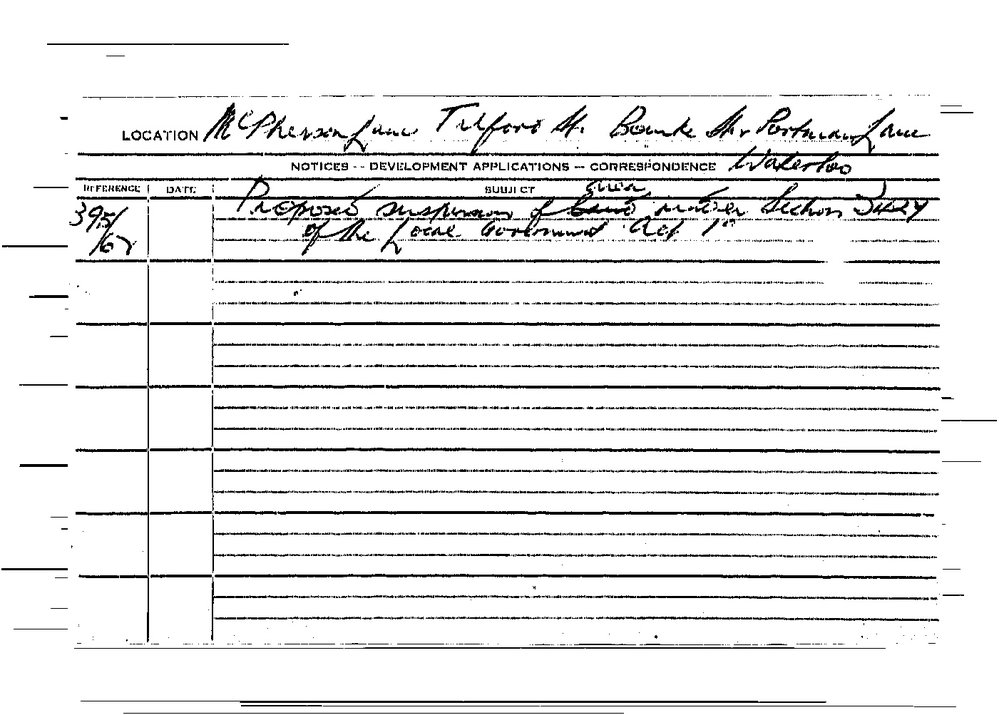 LOCATION McPherson Lane Telford St. Bourke St & Portman Lane
NOTICES -- DEVELOPMENT APPLICATIONS -- CORRESPONDENCE Waterloo
REFERENCE DATE SUBJECT area
395/ Proposed suspension of land under Section
/67 of the Local Government Act 1